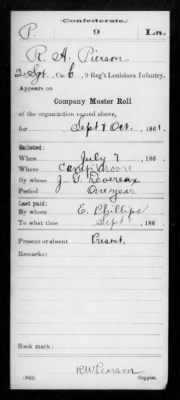 Confederate.
P. 9 La.
R. A. Pierson
2 Sgt, Co. C, 9 Reg't Louisiana Infantry.
Appears on
Company Muster Roll
of the organization named above,
for Sept & Oct, 1861.
Enlisted:
When July 7, 186 .
Where Camp Moore
By whom J. G. Devereux
Period One year
Last paid:
By whom E. Phillips
To what time Sept 1, 186 .
Present or absent Present
Remarks:
Book mark:
R W Pearson
Copyist.